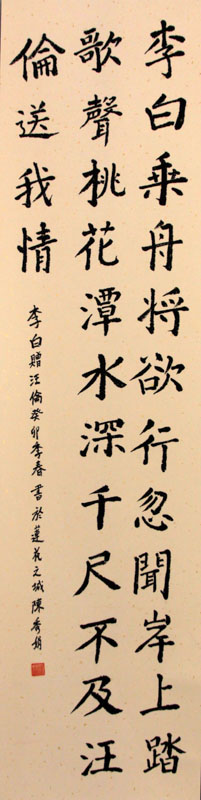 李白乘舟将欲行忽聞岸上踏
歌聲桃花潭水深千尺不及汪
倫送我情
李白贈汪倫癸卯季春書於蓮花之城陳秀娟